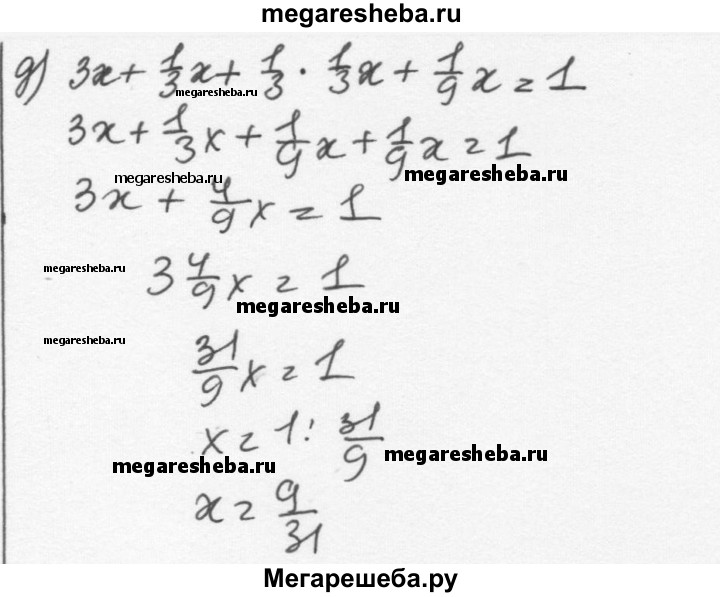 megaresheba.ru
д) 3x + 1/3 x + 1/3 · 1/3 x + 1/9 x = 1
megaresheba.ru
3x + 1/3 x + 1/9 x + 1/9 x = 1
megaresheba.ru
megaresheba.ru
3x + 4/9 x = 1
megaresheba.ru
3 4/9 x = 1
megaresheba.ru
megaresheba.ru
31/9 x = 1
x = 1 : 31/9
megaresheba.ru
megaresheba.ru
x = 9/31
Мегарешеба.ру